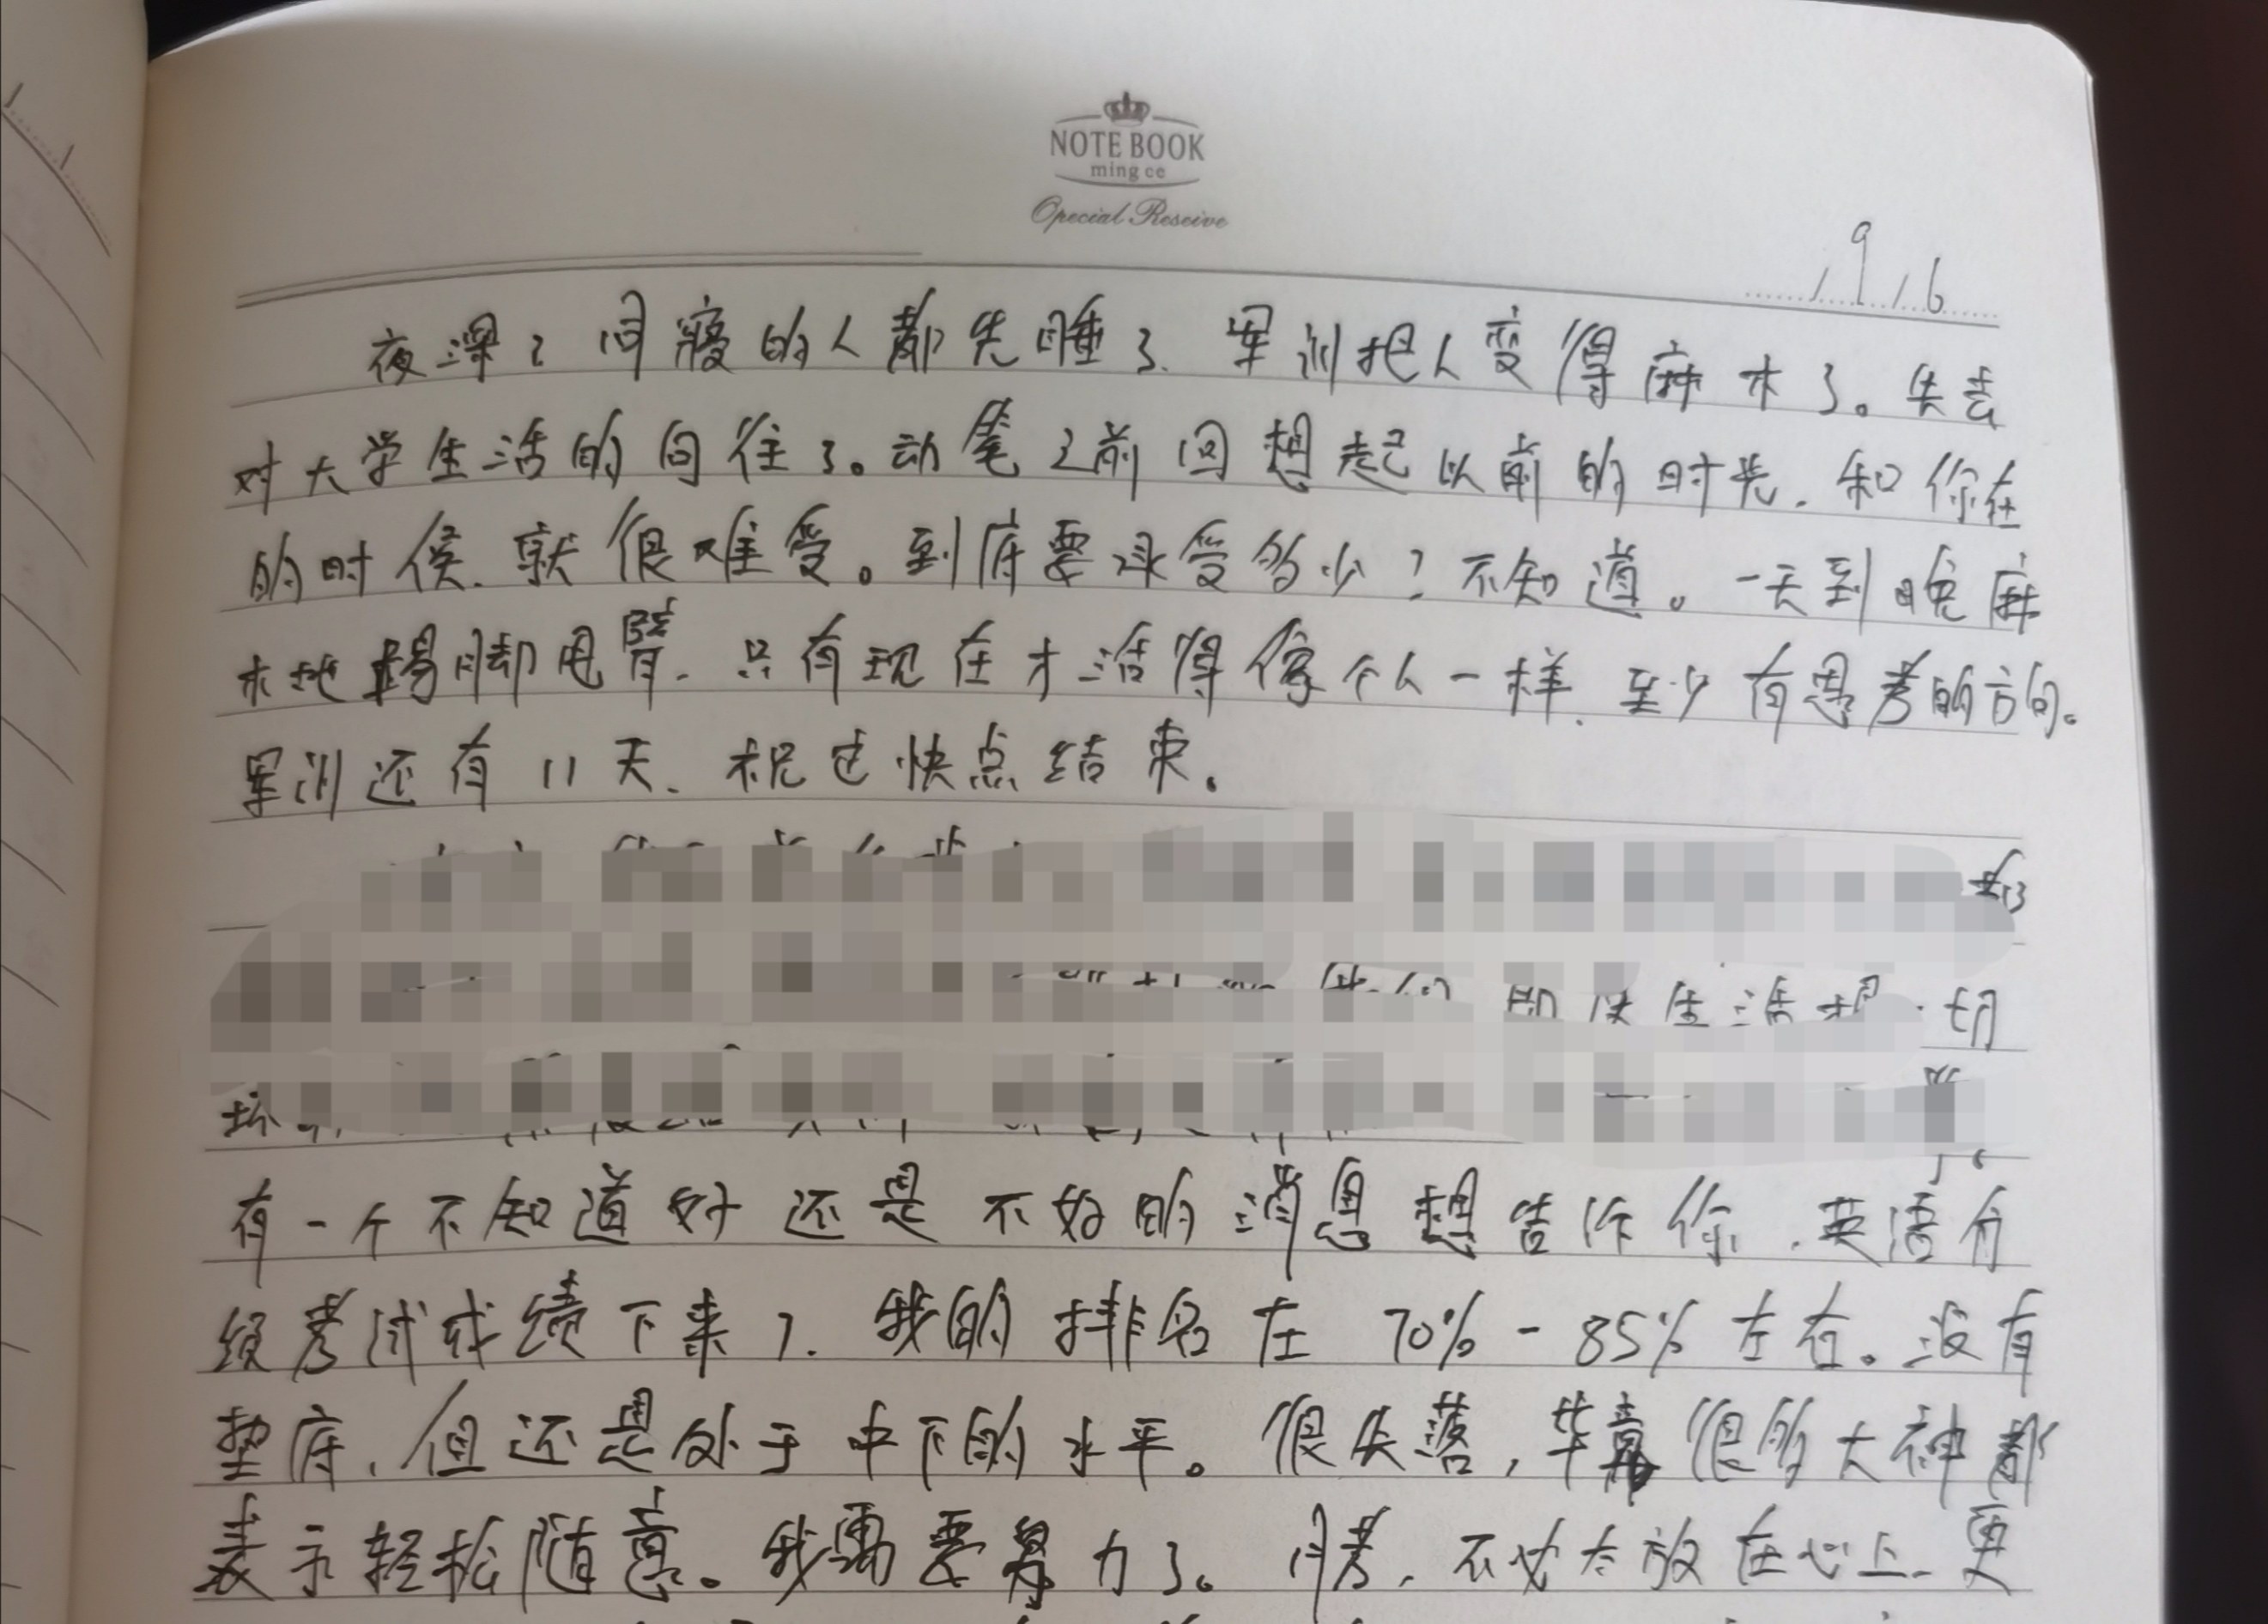 NOTE BOOK
ming ce
Special Reseive
9 16
夜深了同寝的人都先睡了.军训把人变得麻木了。失去
对大学生活的向往了。动笔之前回想起以前的时光.和你在
的时候.就很难受。到底要承受多少?不知道。一天到晚麻
木地踢脚甩臂.只有现在才活得像个人一样.至少有思考的方向。
军训还有11天.祝它快点结束。
切
有一个不知道好还是不好的消息想告诉你.英语分
级考试成绩下来了.我的排名在70%-85%左右。没有
垫底.但还是处于中下的水平。很失落,毕竟很多大神都
表示轻松随意。我需要努力了。月考.不必太放在心上.更